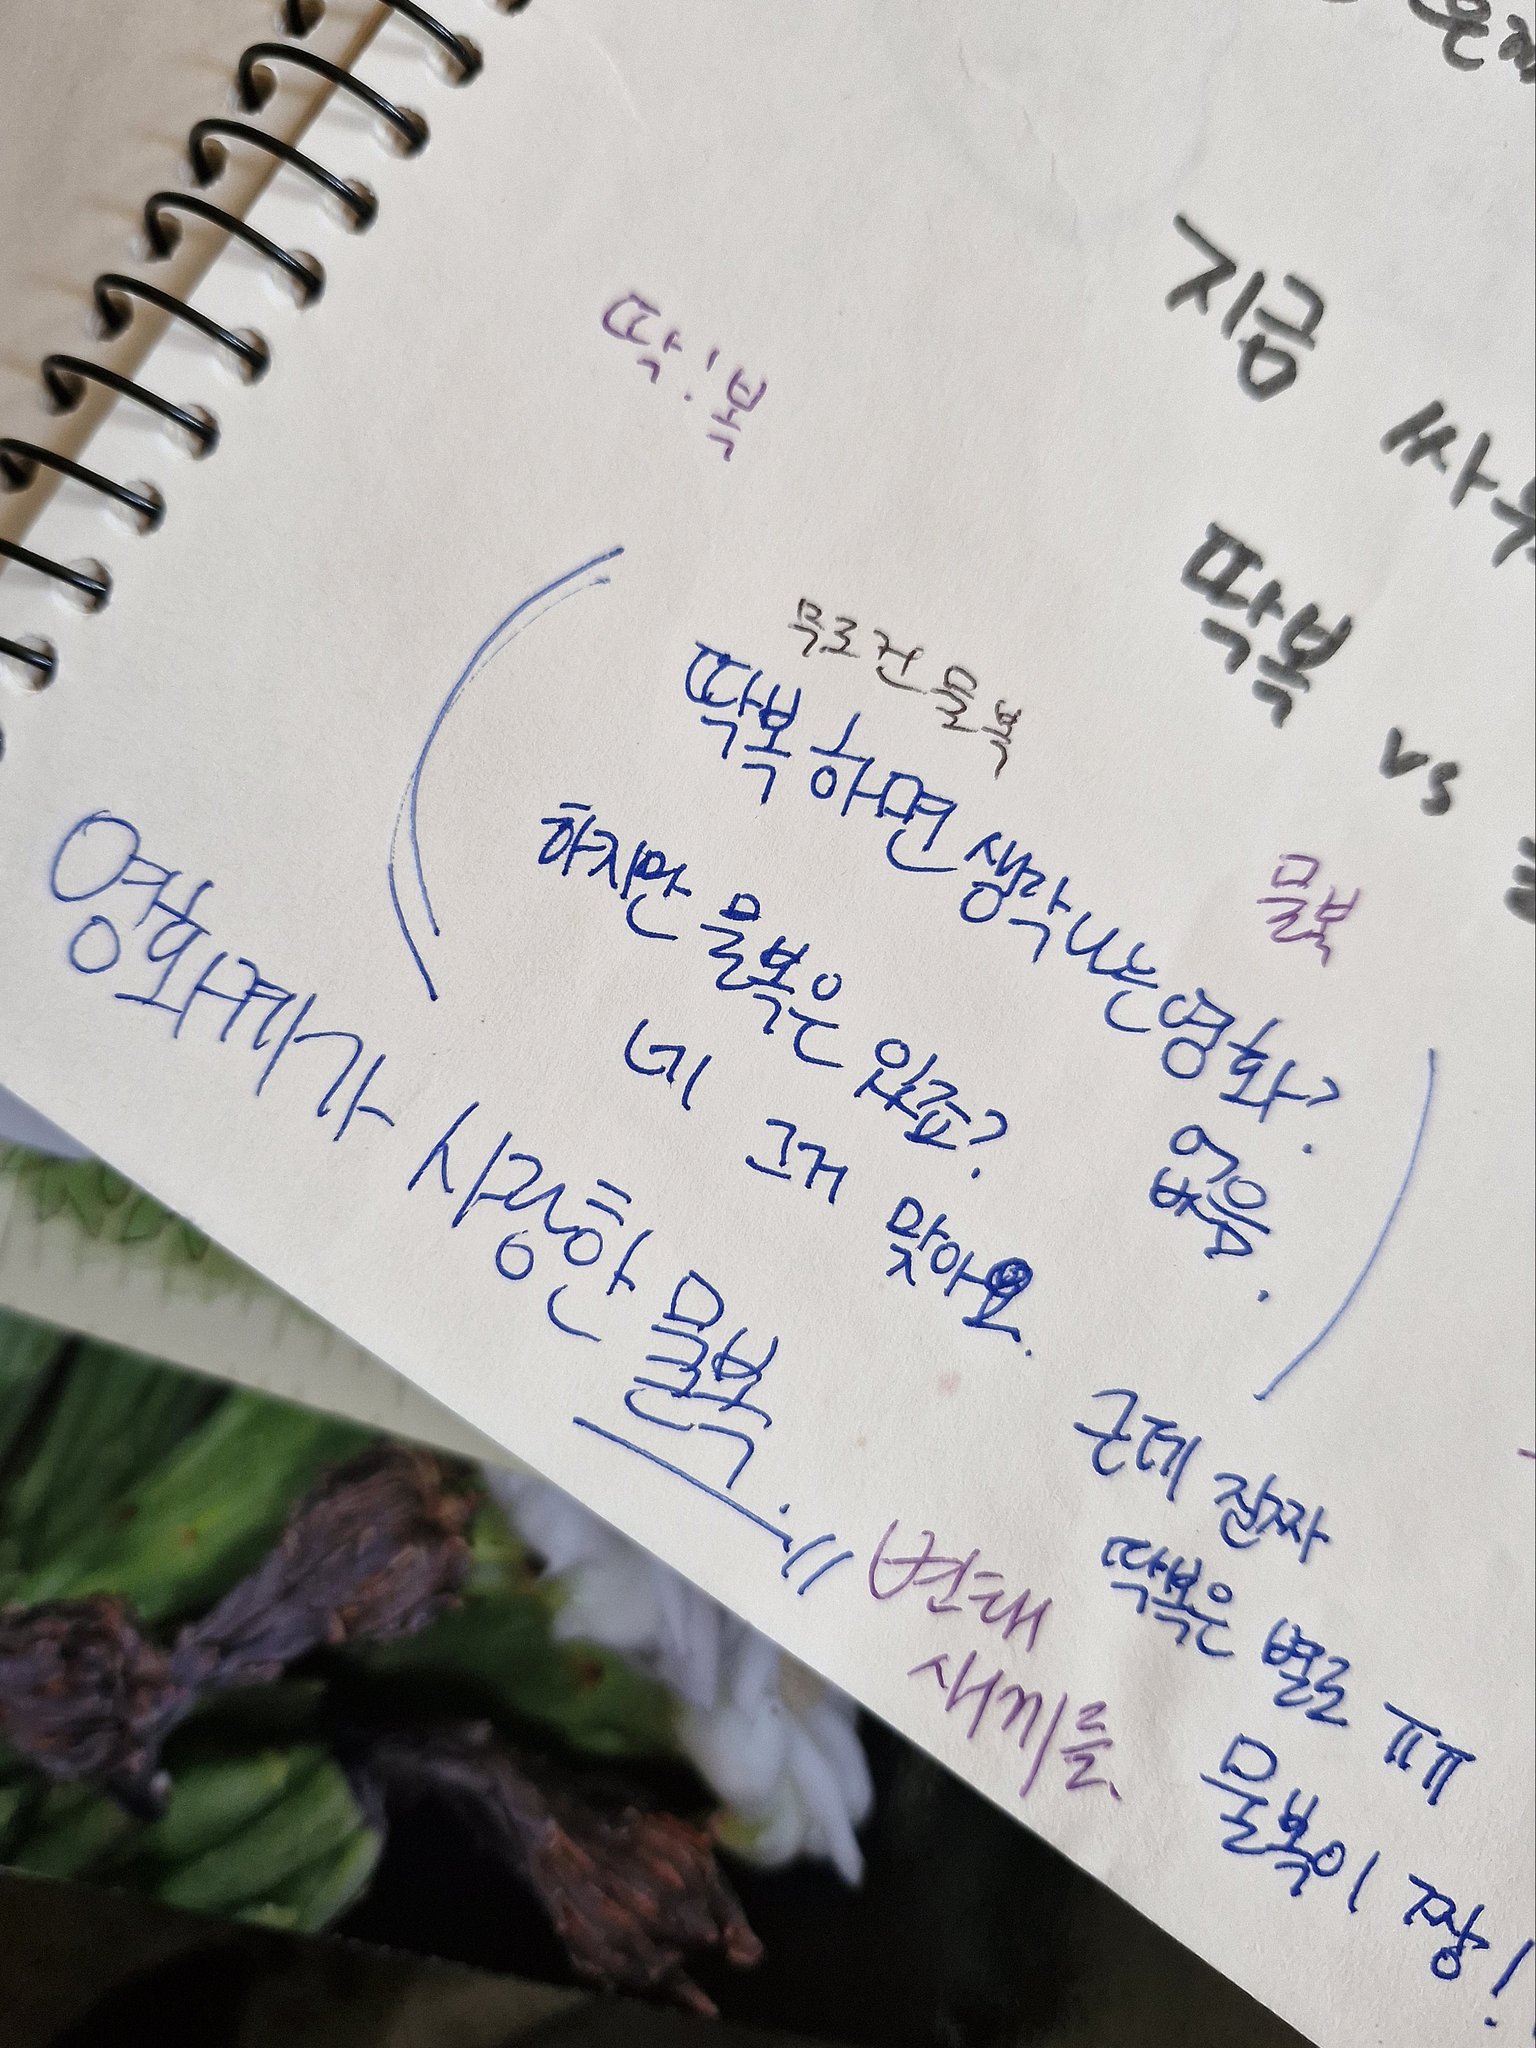 지금 싸우
딱복 vs
딱!복
무조건 물복
물복
딱복 하면 생각나는 영화? 없음.
하지만 물복은 있죠?
네 그거 맞아요.
영화계가 사랑한 물복.
근데 진짜
딱복은 별로 ㅠㅠ
물복이 짱!
변태
새끼들.